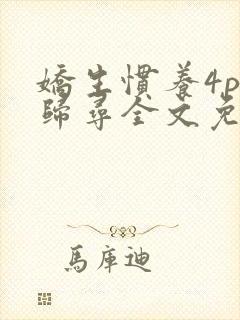 嬌生慣養4p
歸尋全文免
馬庫迪